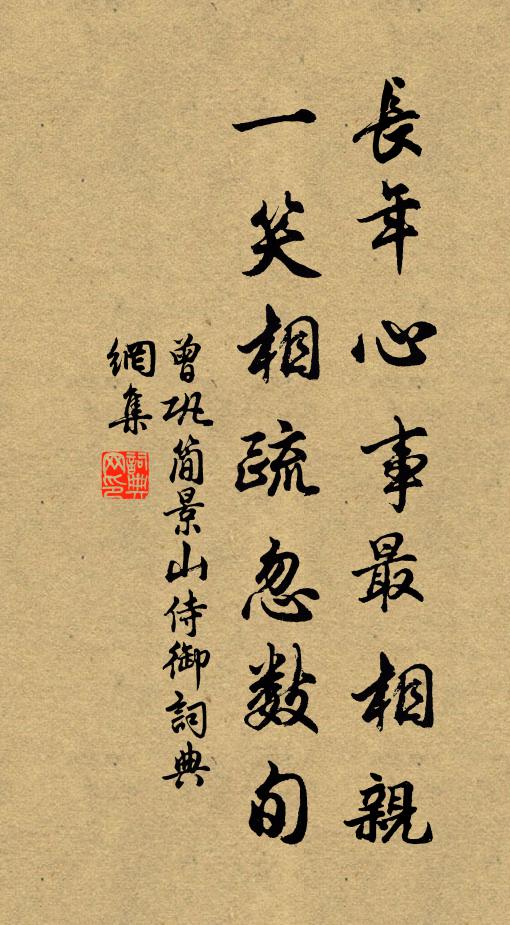 長年心事最相親
一笑相疏忽数旬
曾巩简景山侍御詞典
網集
詞典网印